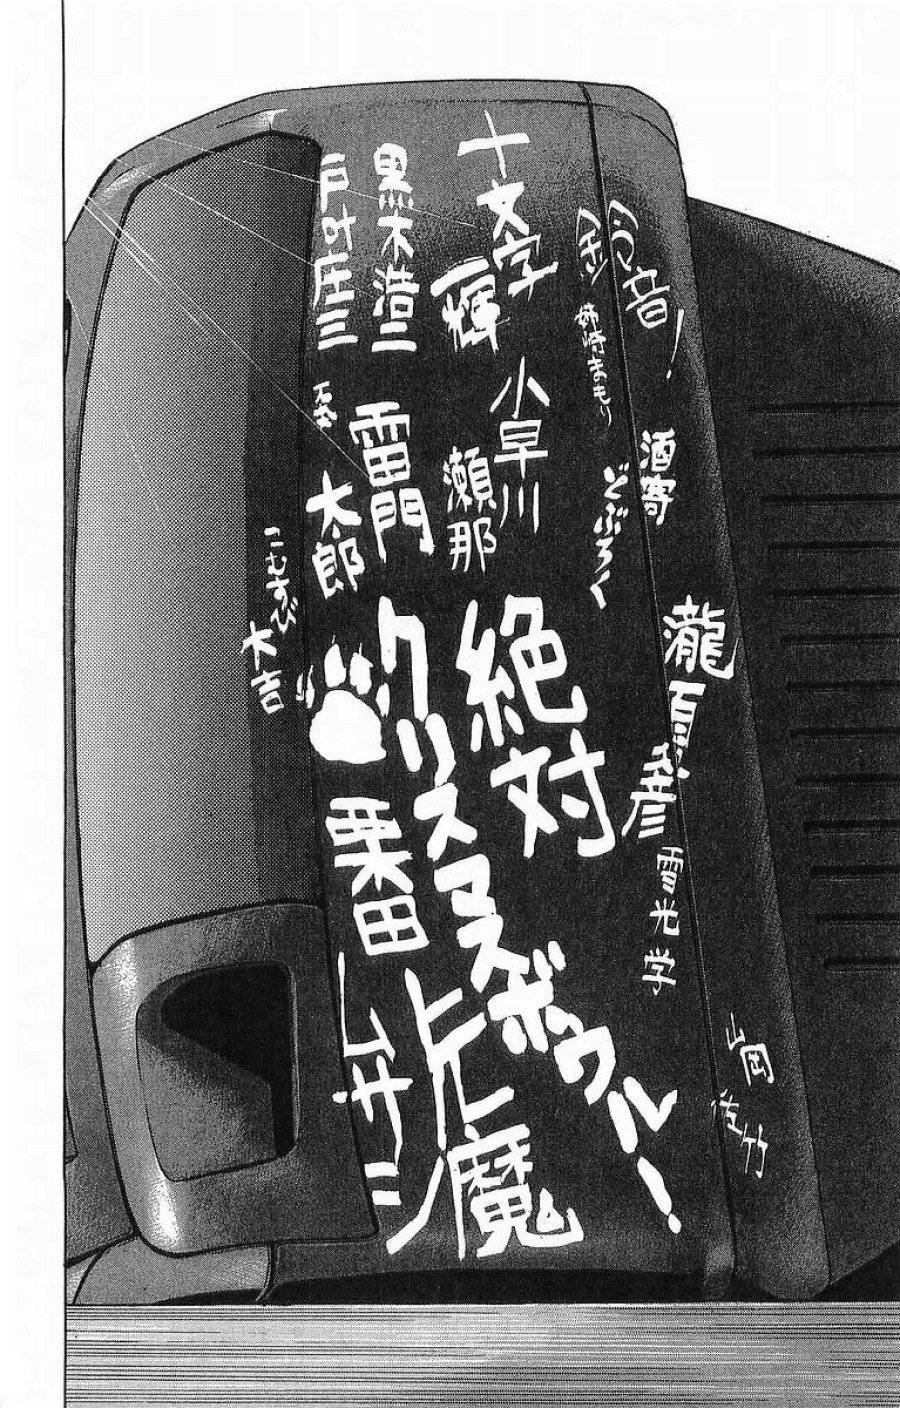 鈴音!
鈴
姉崎まもり
酒寄
どぶろく
瀧
夏彦
雪光学
山岡
佐竹
十文字
一輝
黒木浩二
戸叶庄三
小早川
瀬那
雷門
太郎
石丸
こむすび
大吉
絶対
クリスマスボウル!
栗田
ヒル魔
ムサシ